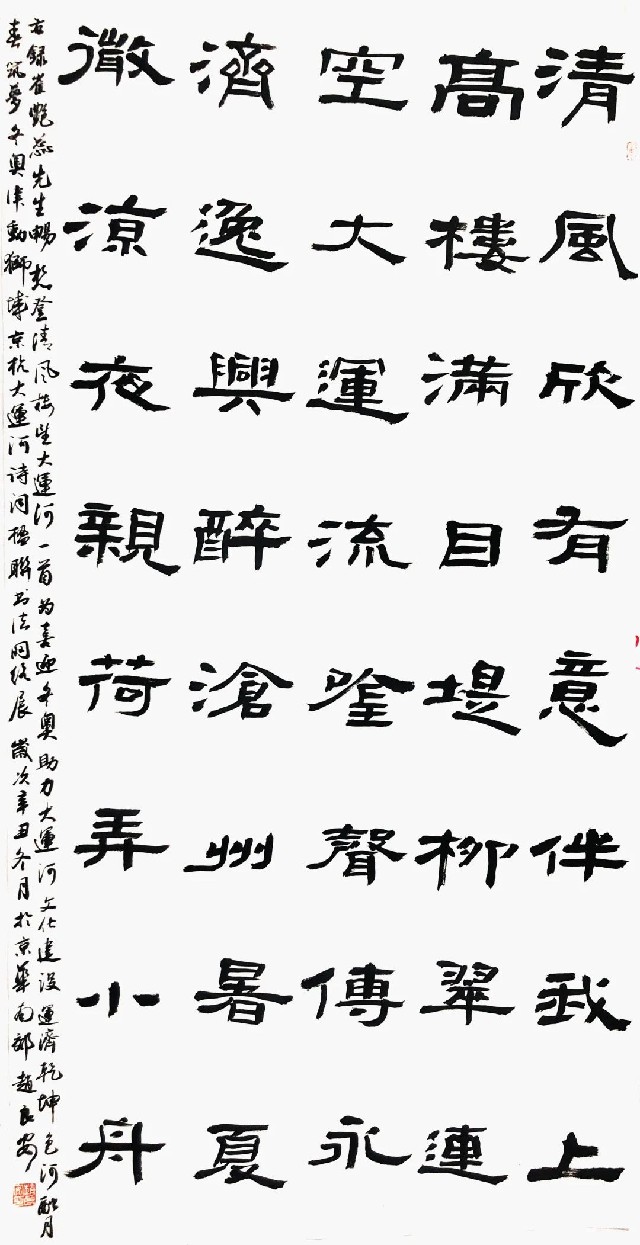 清風欣有意伴我上
高樓滿目堤柳翠連
空大運流哈聲傳永
濟逸興醉滄州暑夏
徵涼夜親荷弄小舟
右錄崔艷蕊先生暢想登清風樓望大運河一首為喜迎冬奧助力大運河文化建設運濟乾坤色河酬月
春筑夢冬奧律動獅城京杭大運河詩詞楹聯書法網絡展歲次辛丑冬月於京華南部趙良安